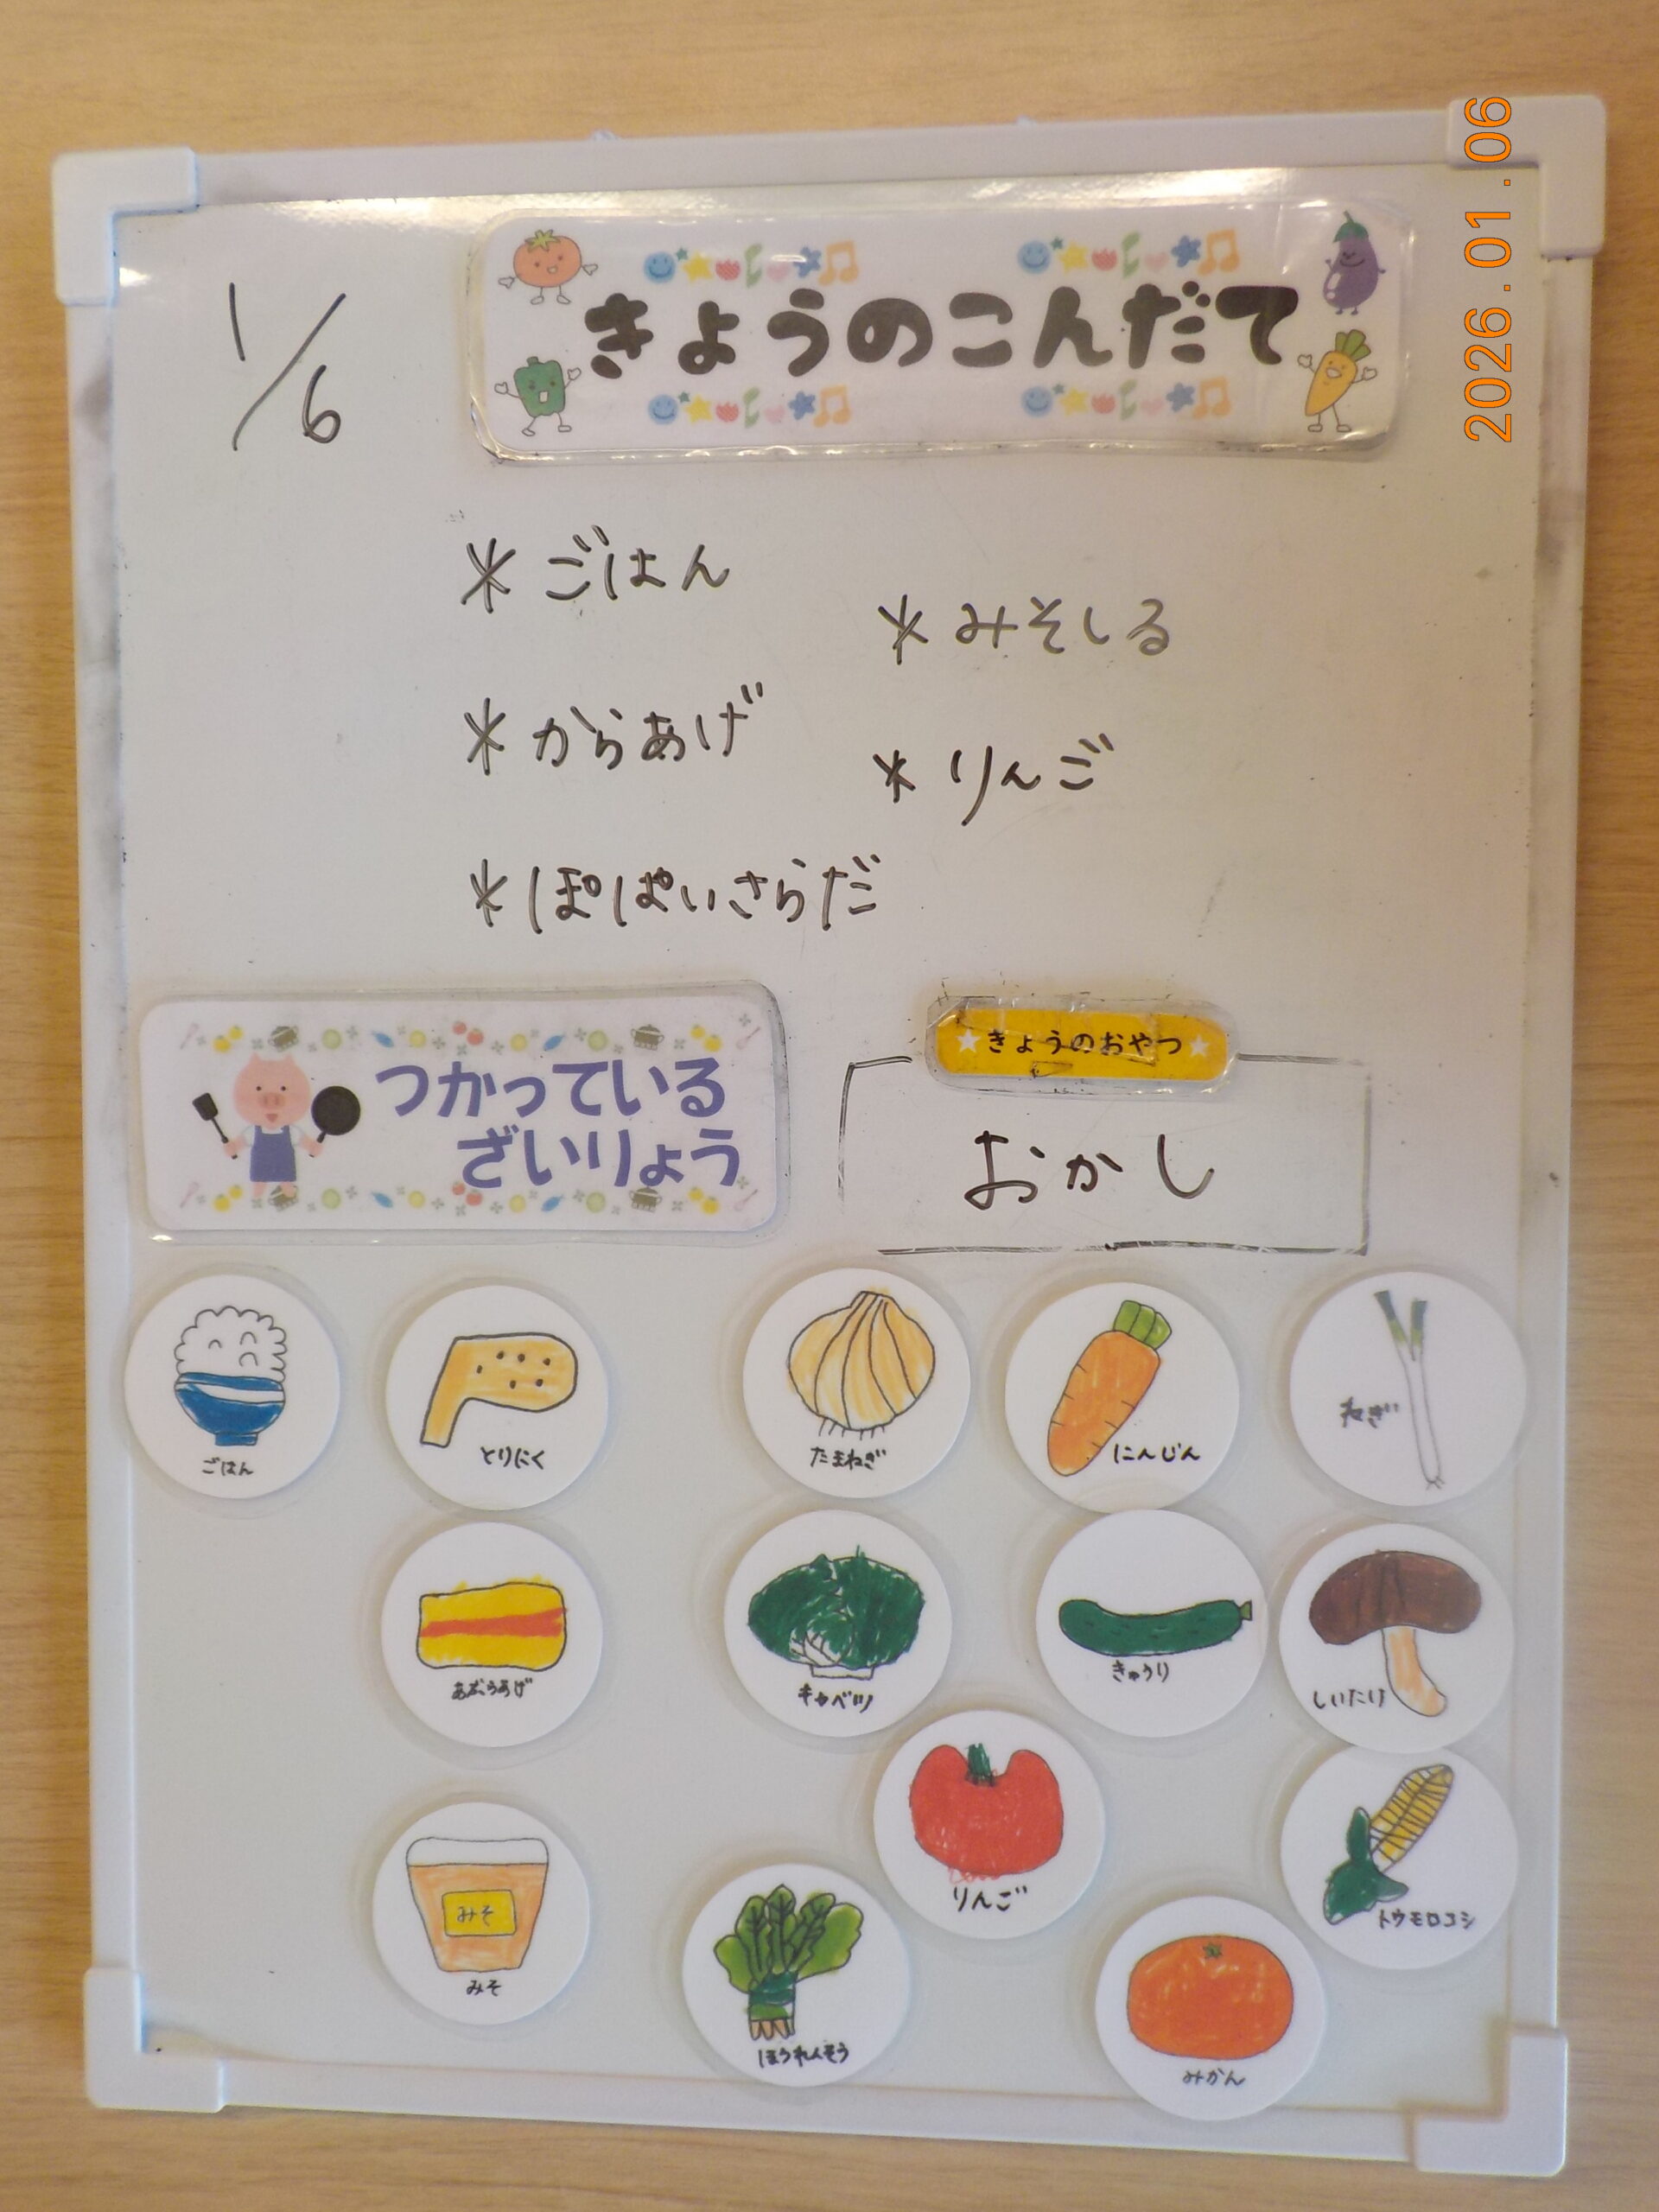 1/6
きょうのこんだて
2026.01.06
* ごはん
* みそしる
* からあげ
* りんご
* ぽぱいさらだ
つかっている
ざいりょう
きょうのおやつ
おかし
ごはん
とりにく
たまねぎ
にんじん
ねぎ
あぶらあげ
キャベツ
きゅうり
しいたけ
りんご
トウモロコシ
みそ
みそ
ほうれんそう
みかん